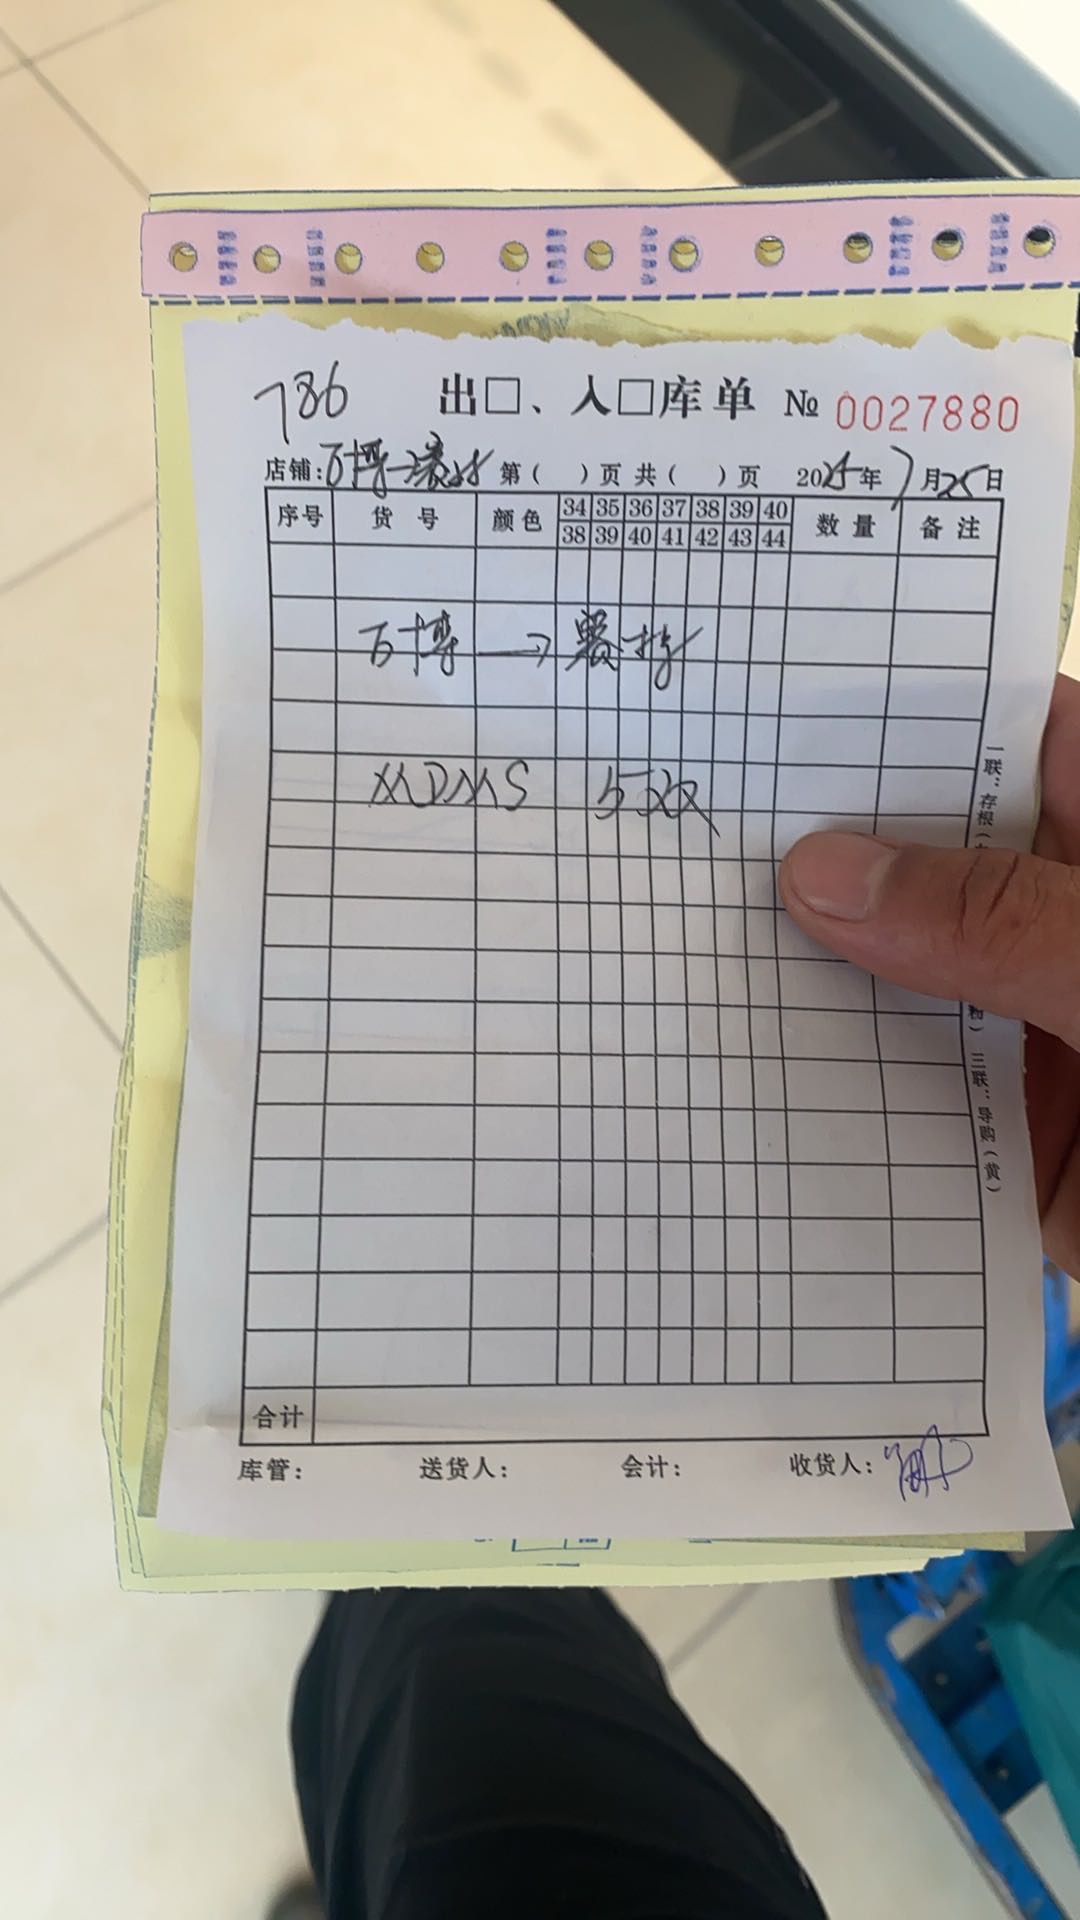 786 出□、入□库单 № 0027880
店铺:万博 第( )页 共( )页 2025年7月25日
序号 货号 颜色 34 35 36 37 38 39 40 数量 备注
38 39 40 41 42 43 44
万博→
MDMS 5双
合计
库管: 送货人: 会计: 收货人:
一联:存根(
) 三联:导购(黄)